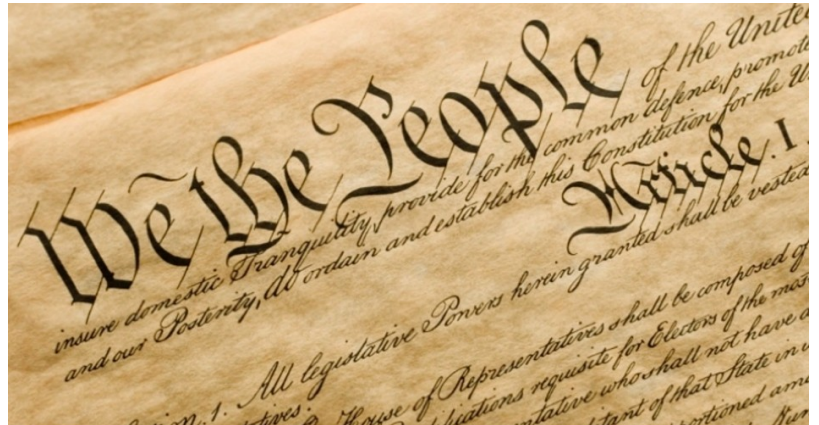 We the People of the United
insure domestic Tranquility, provide for the common defence, promote
and our Posterity, do ordain and establish this Constitution for the U
Article. I.
1. All legislative Powers herein granted shall be vested
House of Representatives shall be composed of
requisite for Electors of the most
who shall not have a
of that State in